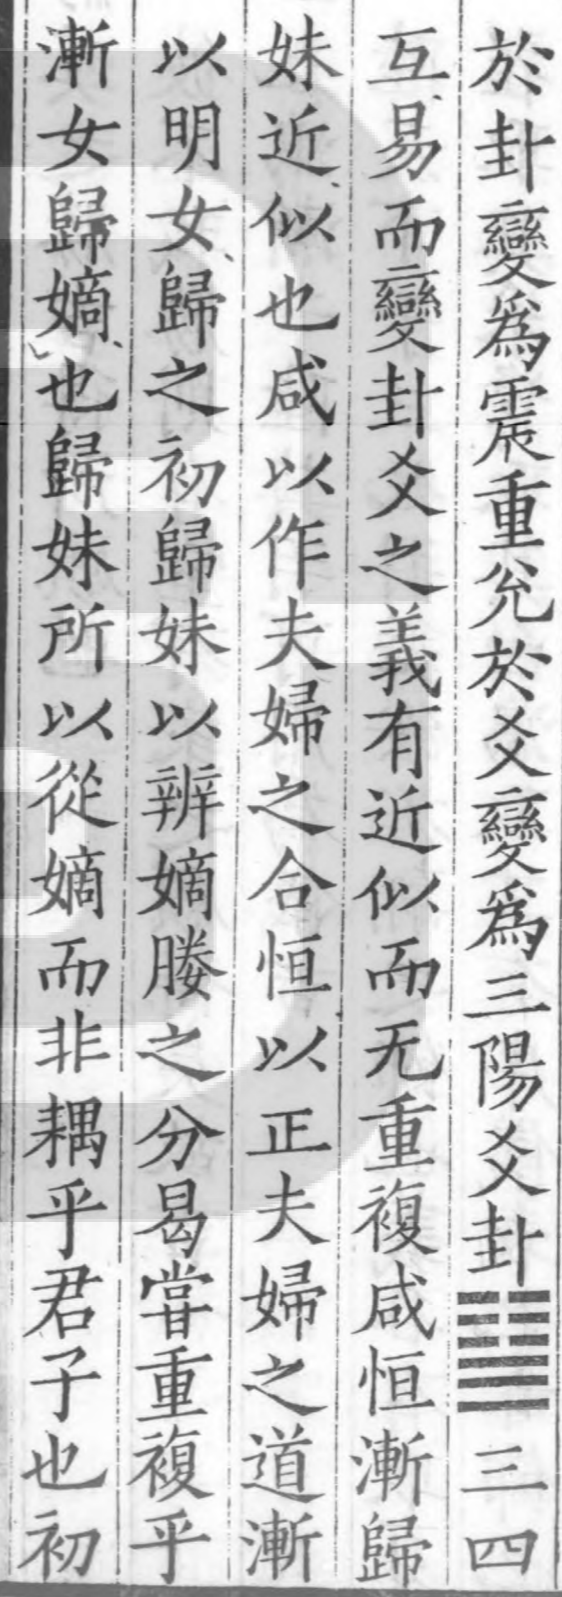 於卦變爲震重兊於爻變爲三陽爻卦䷊三四
互易而變卦爻之義有近似而无重複咸恒漸歸
妹近似也咸以作夫婦之合恒以正夫婦之道漸
以明女歸之初歸妹以辨嫡媵之分曷嘗重複乎
漸女歸嫡也歸妹所以從嫡而非耦乎君子也初